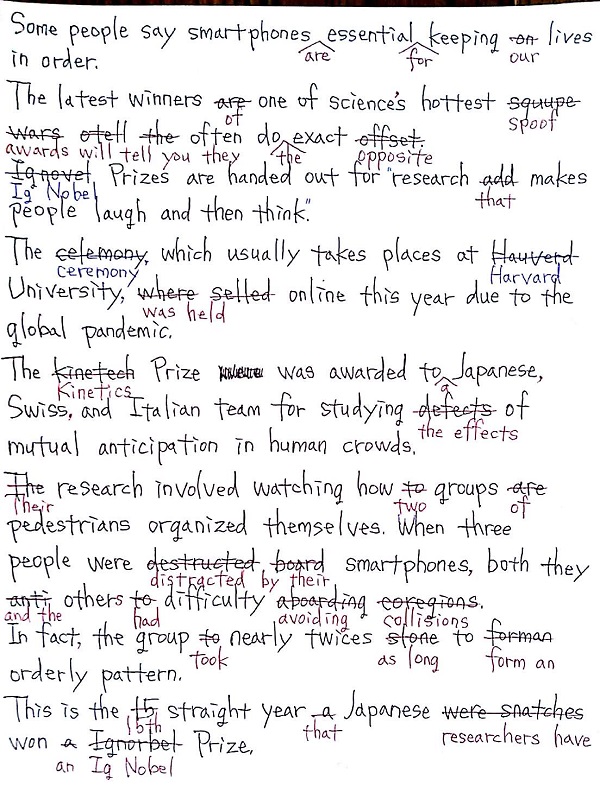 Some people say smartphones essential keeping on lives
are for our
in order.
The latest winners are one of science's hottest squupe
of spoof
wars otell the often do exact offset.
awards will tell you they the opposite
Ignovel Prizes are handed out for "research add makes
Ig Nobel that
people laugh and then think."
The celemony, which usually takes places at Hauverd
ceremony Harvard
University, where selled online this year due to the
was held
global pandemic.
The kinetech Prize was awarded to Japanese,
Kinetics a
Swiss, and Italian team for studying defects of
the effects
mutual anticipation in human crowds.
The research involved watching how to groups are
Their two of
pedestrians organized themselves. When three
people were destructed board smartphones, both they
distracted by their
anti others to difficulty aboarding coregions.
and the had avoiding collisions
In fact, the group to nearly twices stone to forman
took as long form an
orderly pattern.
This is the 15 straight year a Japanese were snatches
15th that researchers have
won a Ignorbel Prize,
an Ig Nobel